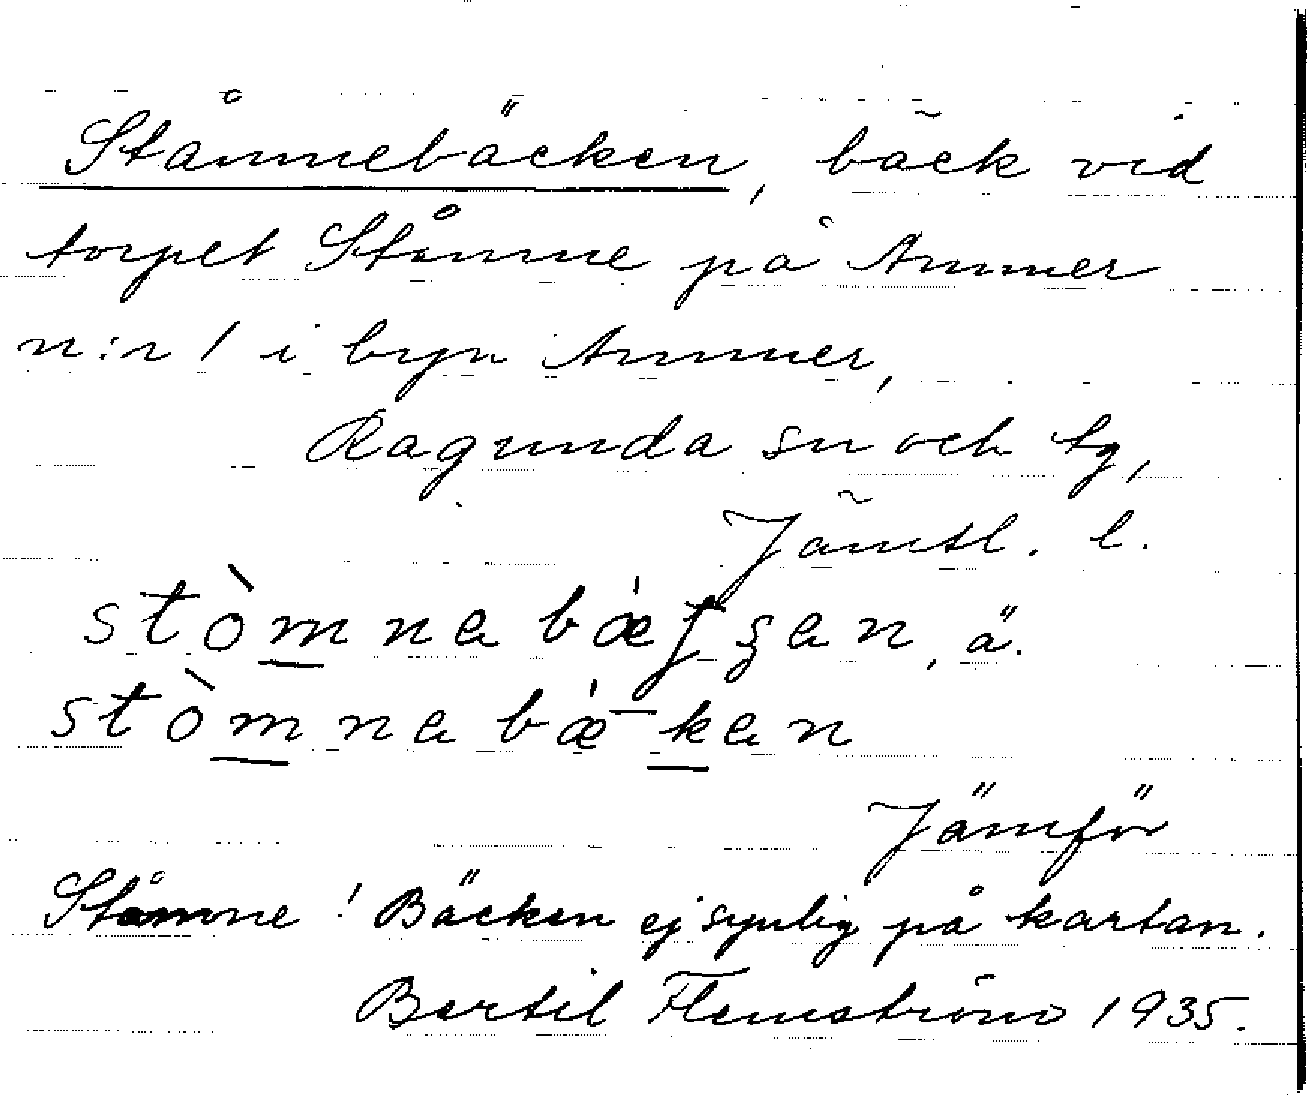 Ståmnebäcken, bäck vid
torpet Ståmne på Ammer
n:r 1 i byn Ammer,
Ragunda sn och tg,
Jämtl. l.
ä.
Jämför
Ståmne! Bäcken ej synlig på kartan.
Bertil Flemström 1935.